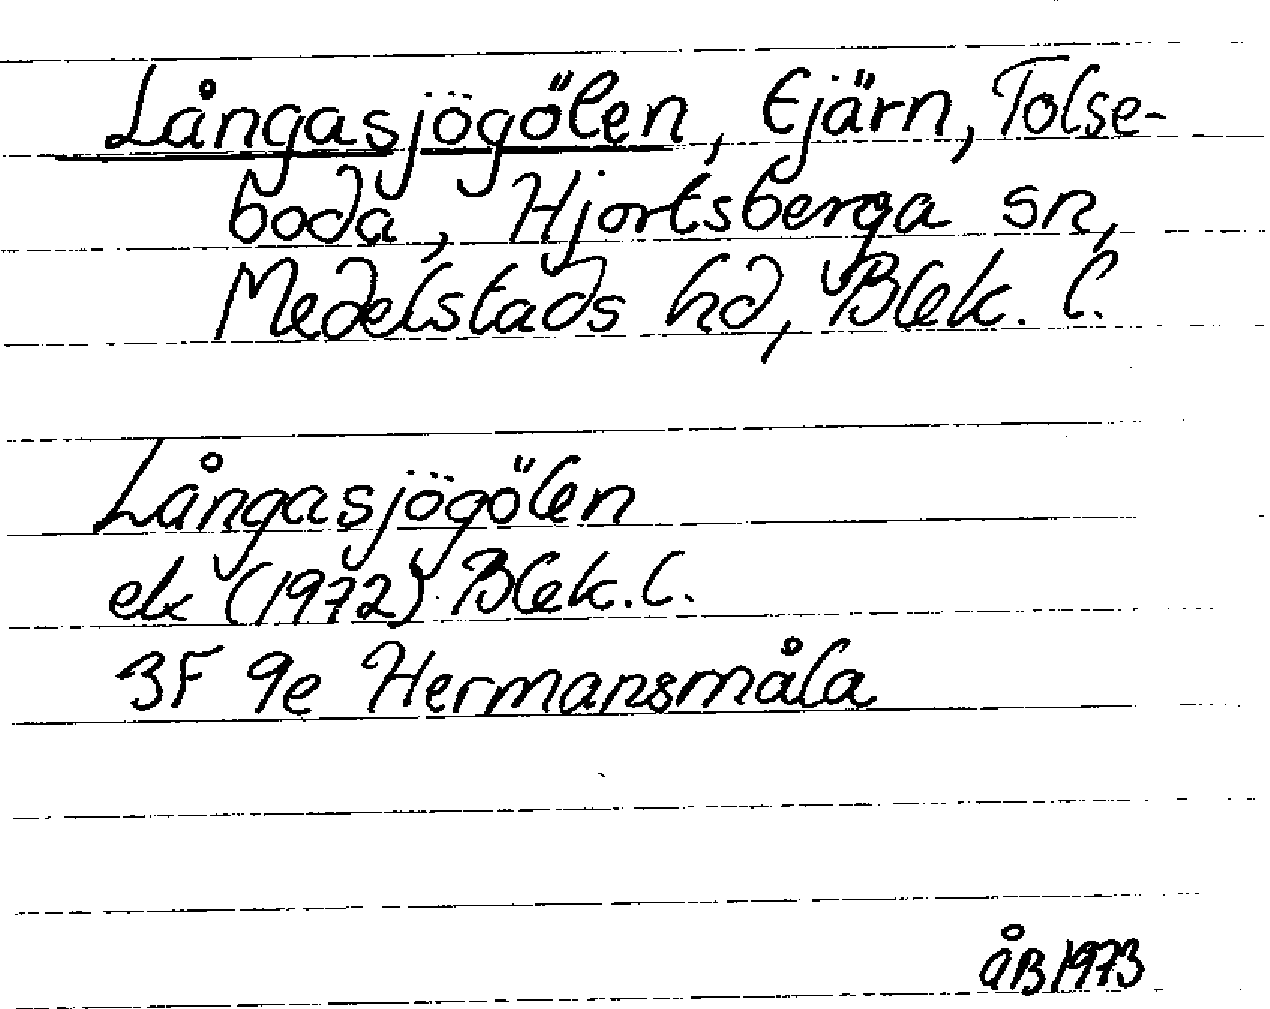 Långasjögölen, tjärn, Tolse-
boda, Hjortsberga sn,
Medelstads hd, Blek. l.
Långasjögölen
ek (1972) Blek. l.
3F 9e Hermansmåla
åB 1973